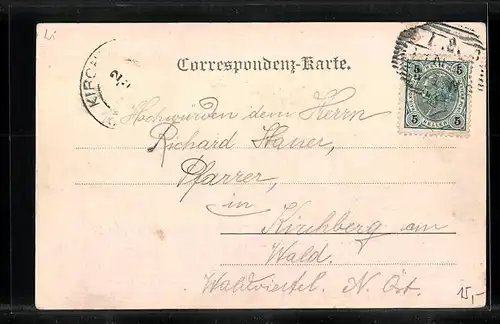 Li
Correspondenz-Karte.
KIRCH
5 5
5 HELLER 5
Hochwürden dem Herrn
Richard Hauer,
Pfarrer,
in
Kirchberg am
Wald.
Waldviertel. N. Öst.
15,-